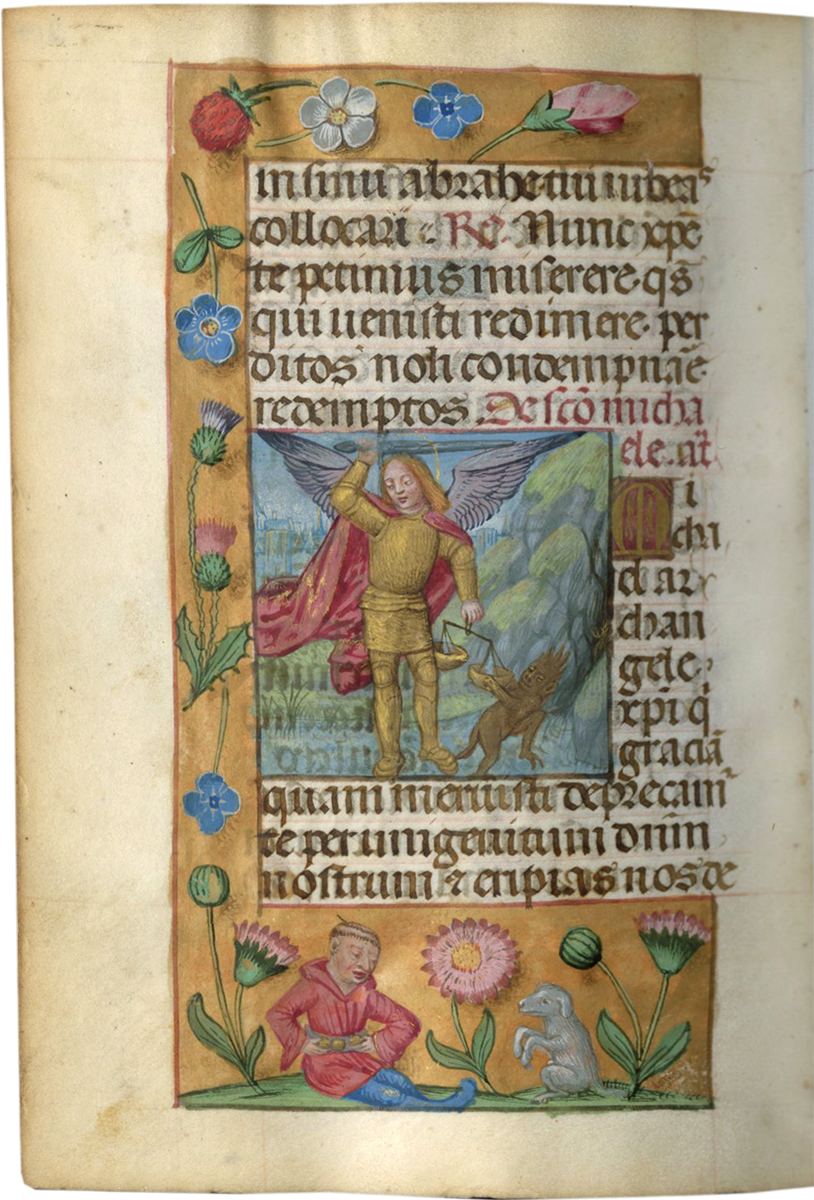 in sinu abrahe tui iubeas
collocari. Re. Nunc xpe
te petimus miserere. qs
qui uenisti redimere. per
ditos noli condempnare.
redemptos. De sco micha
ele. añ
Mi
cha
el ar
chan
gele
xpi q
graciã
quam meruisti deprecamr
te per unigenitum dnm
nostrum et eripias nos de